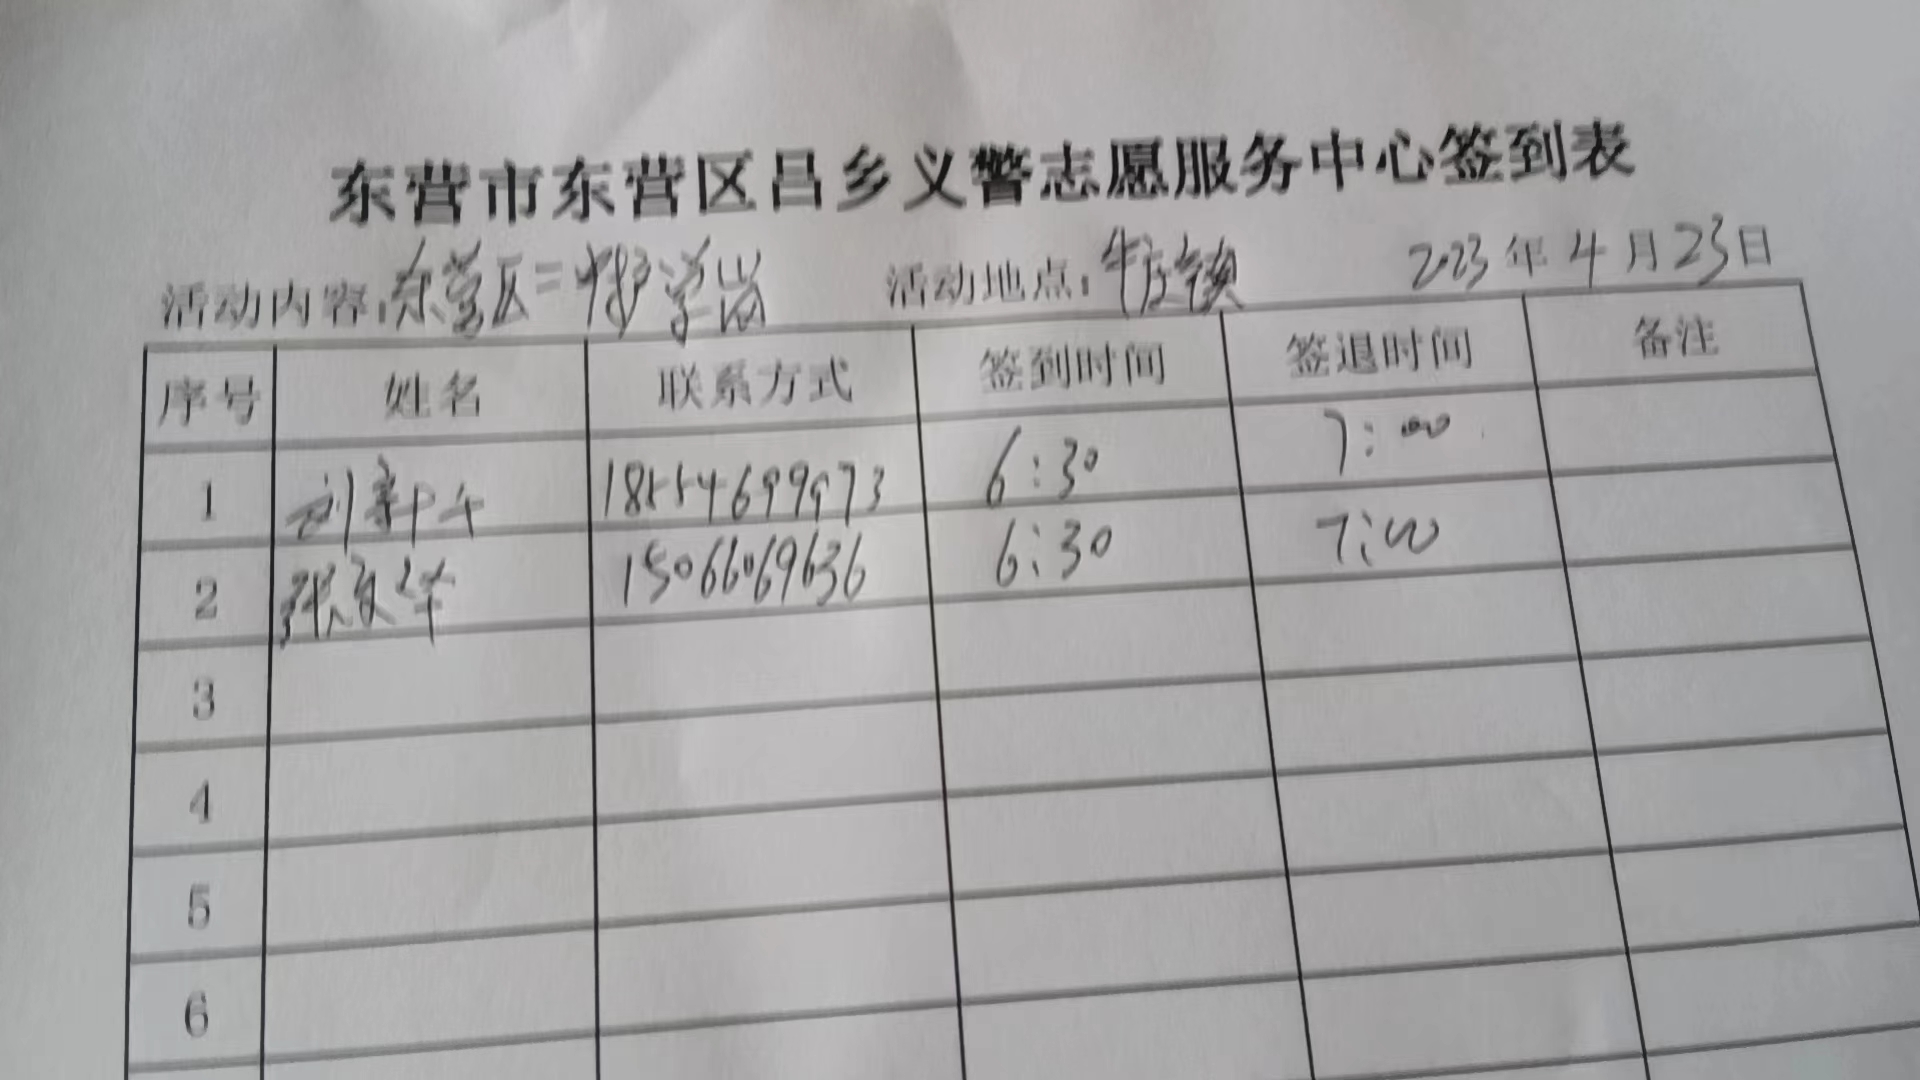 东营市东营区吕乡义警志愿服务中心签到表
活动内容:东营区二中护学岗 活动地点:牛庄镇 2023年4月23日
序号 姓名 联系方式 签到时间 签退时间 备注
1 18554699973 6:30 7:00
2 张 15066069636 6:30 7:00
3
4
5
6